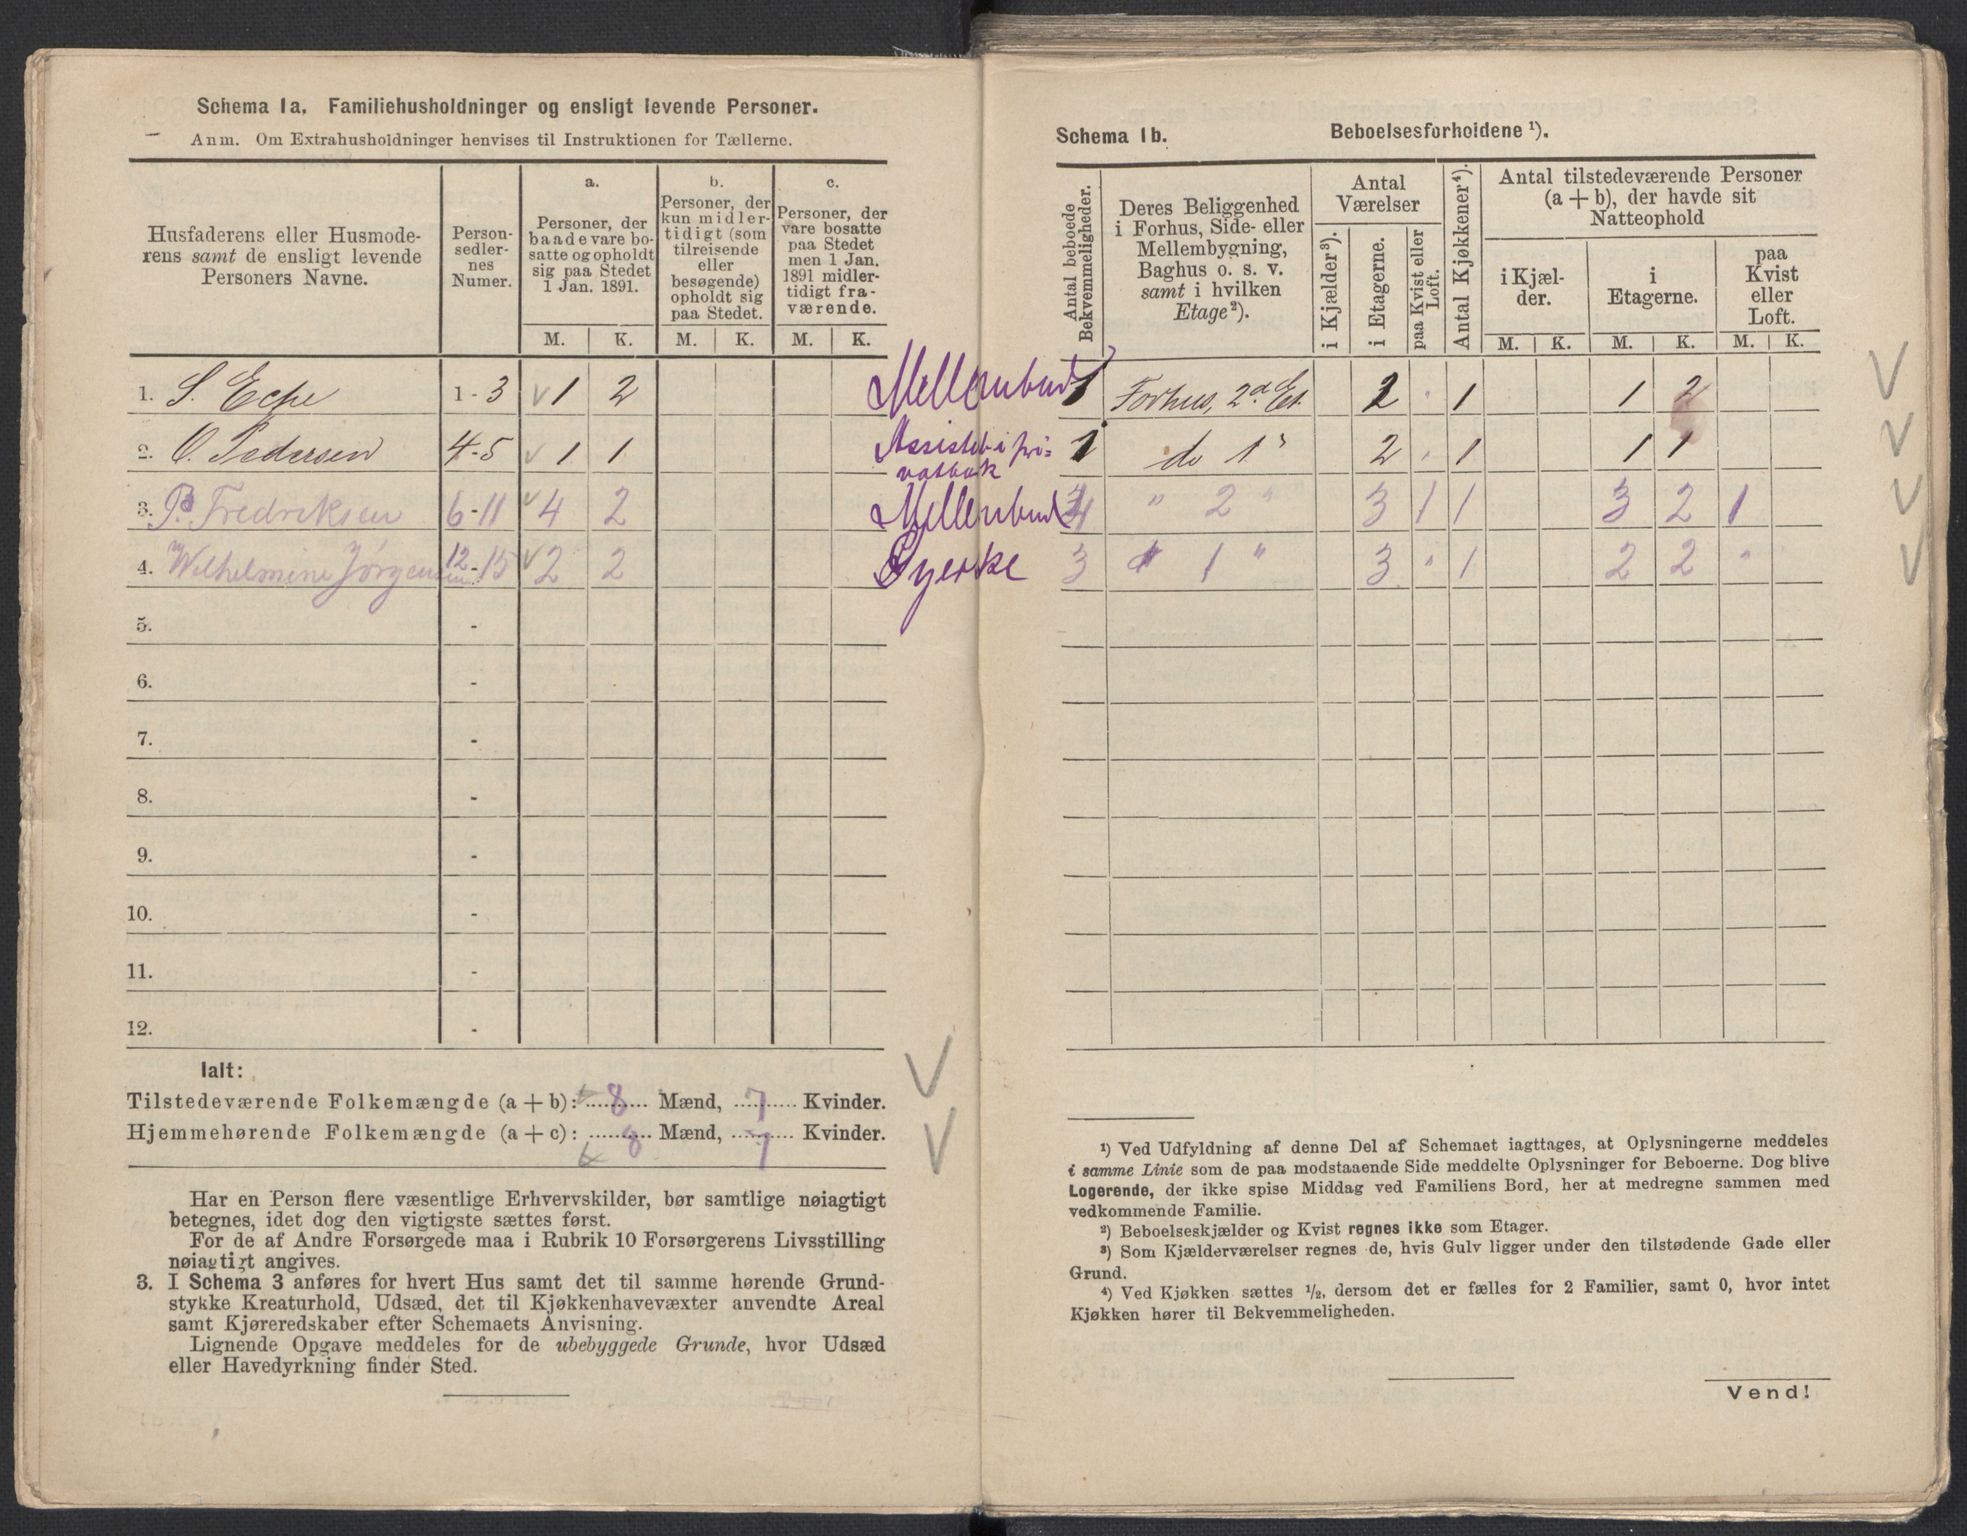 Schema 1a. Familiehusholdninger og ensligt levende Personer.
Anm. Om Extrahusholdninger henvises til Instruktionen for Tællerne.
Husfaderens eller Husmode-
rens samt de ensligt levende
Personers Navne.
Person-
sedler-
nes
Numer.
a.
Personer, der
baade vare bo-
satte og opholdt
sig paa Stedet
1 Jan. 1891.
b.
Personer, der
kun midler-
tidigt (som
tilreisende
eller
besøgende)
opholdt sig
paa Stedet.
c.
Personer, der
vare bosatte
paa Stedet
men 1 Jan.
1891 midler-
tidigt fra-
værende.
M. K. M. K. M. K.
1. 1 - 3 1 2
2. O. Pedersen 4-5 1 1
3. P. Fredriksen 6-11 4 2
4. Wilhelmine Jørgensen 12-15 2 2
5. -
6. -
7. -
8. -
9. -
10. -
11. -
12. -
Ialt:
Tilstedeværende Folkemængde (a + b): 8 Mænd, 7 Kvinder.
Hjemmehørende Folkemængde (a + c): 8 Mænd, 7 Kvinder.
Har en Person flere væsentlige Erhvervskilder, bør samtlige nøiagtigt
betegnes, idet dog den vigtigste sættes først.
For de af Andre Forsørgede maa i Rubrik 10 Forsørgerens Livsstilling
nøiagtigt angives.
3. I Schema 3 anføres for hvert Hus samt det til samme hørende Grund-
stykke Kreaturhold, Udsæd, det til Kjøkkenhavevæxter anvendte Areal
samt Kjøreredskaber efter Schemaets Anvisning.
Lignende Opgave meddeles for de ubebyggede Grunde, hvor Udsæd
eller Havedyrkning finder Sted.
Schema 1b. Beboelsesforholdene ¹).
Antal beboede
Bekvemmeligheder.
Deres Beliggenhed
i Forhus, Side- eller
Mellembygning,
Baghus o. s. v.
samt i hvilken
Etage²).
Antal
Værelser
i Kjælder³).
i Etagerne.
paa Kvist eller
Loft.
Antal Kjøkkener⁴).
Antal tilstedeværende Personer
(a + b), der havde sit
Natteophold
i Kjæl-
der.
i
Etagerne.
paa
Kvist
eller
Loft.
M. K. M. K. M. K.
1 Forhus, 2d. Et. 2 1 1 2
1 do 1" 2 1 1 1
4 " 2 " 3 1 1 3 2 1
3 1 " 3 " 1 2 2 "
¹) Ved Udfyldning af denne Del af Schemaet iagttages, at Oplysningerne meddeles
i samme Linie som de paa modstaaende Side meddelte Oplysninger for Beboerne. Dog blive
Logerende, der ikke spise Middag ved Familiens Bord, her at medregne sammen med
vedkommende Familie.
²) Beboelseskjælder og Kvist regnes ikke som Etager.
³) Som Kjælderværelser regnes de, hvis Gulv ligger under den tilstødende Gade eller
Grund.
⁴) Ved Kjøkken sættes ½, dersom det er fælles for 2 Familier, samt 0, hvor intet
Kjøkken hører til Bekvemmeligheden.
Vend!